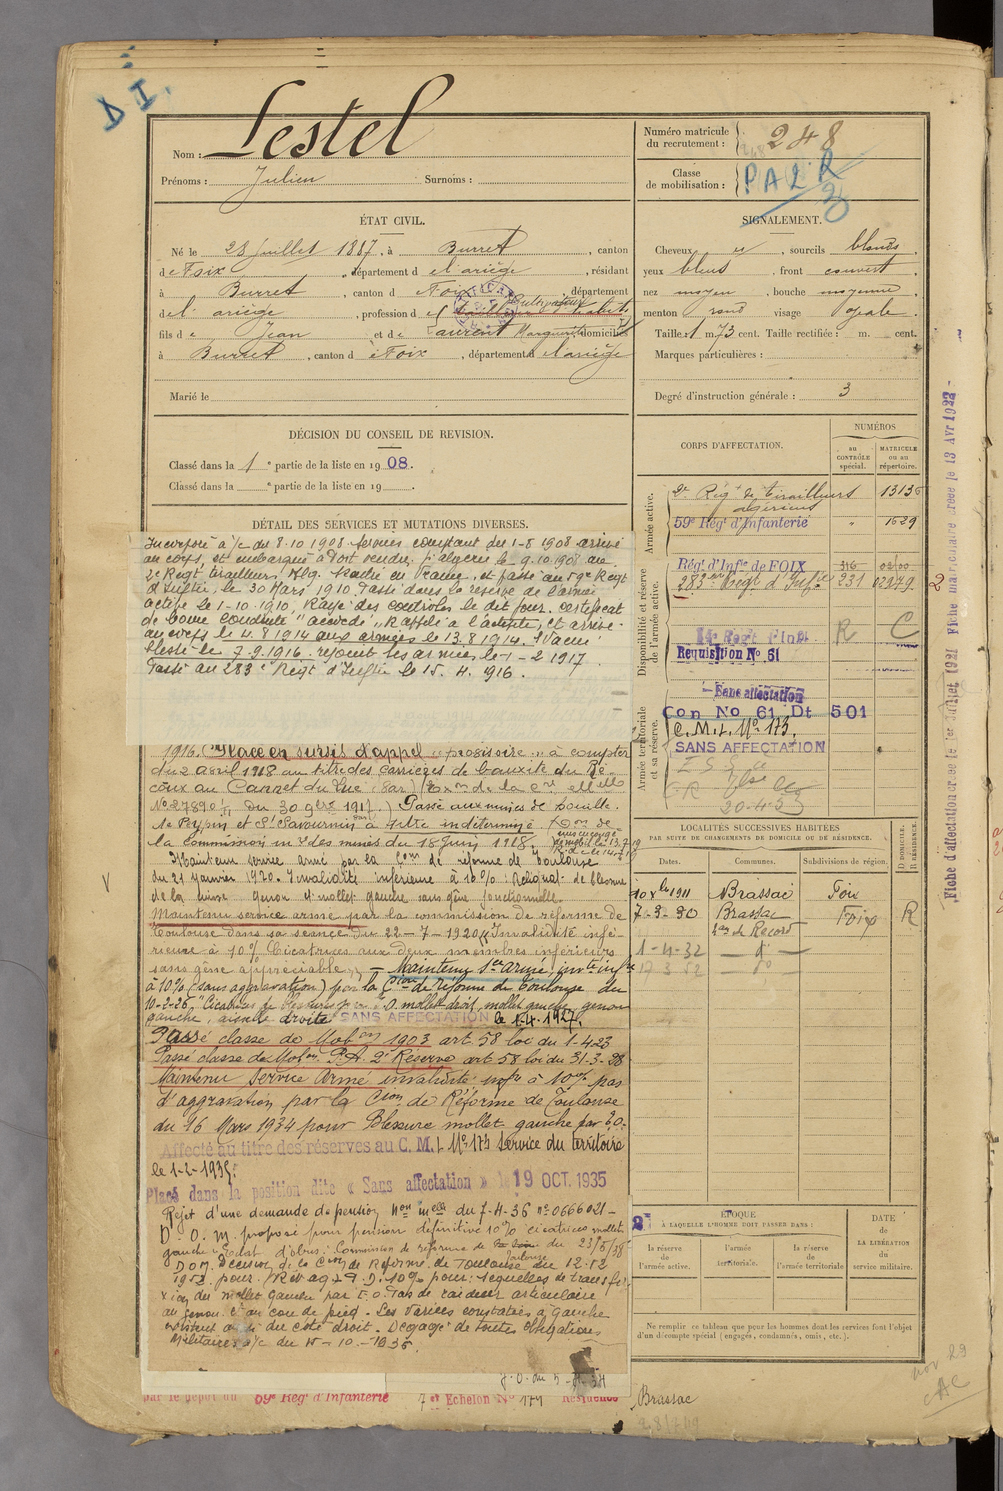 D I.
Nom : Lestel
Prénoms : Julien Surnoms :
ÉTAT CIVIL.
Né le 28 Juillet 1887, à Burret, canton
de Foix, département de l'ariège, résidant
à Burret, canton d e Foix, département
de l'ariège, profession d Cultivateur
fils d e Jean et de Laurent Marguerite domiciliés
à Burret, canton d e Foix, département d e l'ariège
Marié le
DÉCISION DU CONSEIL DE REVISION.
Classé dans la 1e partie de la liste en 1908.
Classé dans la e partie de la liste en 19 .
DÉTAIL DES SERVICES ET MUTATIONS DIVERSES.
Incorporé à /c du 8-10 1908 Services comptant du 1-8 1908 arrivé
au corps, et embarqué à Port vendu, p. algerie le 9.10.1908 au
2e Regt tirailleurs Alg. Rentré en France, et passé au 59e Regt
d'Inftie, le 30 Mars 1910. Passé dans la réserve de l'armée
active le 1-10-1910, Rayé des controles le dit jour. Certificat
de bonne conduite "accordé" Rappelé à l'activité, et arrivé
au corps le 4.8.1914 aux armées le 13.8.1914. Evacué
blessé le 7-9.1916. rejoint les armées le 1-2 1917.
Passé au 283e Regt d'Inftie le 15. 4. 1916.
1916. Placé en sursis d'appel "provisoire" à compter
du 2 avril 1918 au titre des carrières de bauxite du Re-
coux au Cannet du Luc (Var)
No 27890 du 30 9bre 1917.) Passé aux mines de houille.
de Peypin et St Savournin à titre indéterminé
la commission mxte des mines du 18 Juin 1918.
Maintenu service armé par la Com de réforme de Toulouse
du 21 Janvier 1920. Invalidité inférieure à 10% : Reliquat de blessure
de la cuisse genou et mollet gauche sans gêne fonctionnelle.
Maintenu service armé par la commission de réforme de
Toulouse dans sa séance du 22-7-1920 "Invalidité infé-
rieure à 10% Cicatrices aux deux membres inférieurs
sans gêne appréciable" - Maintenu Sce armé, invte infre
à 10% (sans aggravation) par la Cion de réforme de Toulouse du
10-2-26, "Cicatrices de blessures par E.O. mollet droit, mollet gauche, genou
gauche, aisselle droite" SANS AFFECTATION le 1.4.1927.
Passé classe de Mobon 1903 art. 58 loi du 1-4-23
Passé classe de Mobon P.A. 2e Réserve art 58 loi du 31-3-28
Maintenu Service Armé invalidité infre à 10% pas
d'aggravation par la Cion de Réforme de Toulouse
du 16 Mars 1934 pour Blessure mollet gauche par E.O.
Affecté au titre des réserves au C. M. I. No 173 Service du territoire
le 1-2-1935.
Placé dans la position dite « Sans affectation » le 19 OCT. 1935
Rejet d'une demande de pension non mella du 7-4-36 no 0666021-
D. O. M. proposé pour pension définitive 10% cicatrices mollet
gauche. Eclat d'obus. Commission de réforme de Toulouse du 23/5/38
D O M Décision de la Cion de Réforme de Toulouse du 12.12
1952 pour :
xion du mollet gauche par E.O. Pas de raideur articulaire
au genou et au cou de pied. Les varices constatées à gauche
existent aussi du coté droit. Dégagé de toutes obligations
Militaires à/c du 15-10-1935.
J.O. du
par le dépôt du 59e Régt d'Infanterie 7et Echelon No 179 Résidence Brassac
Numéro matricule
du recrutement : 248
Classe
de mobilisation : P A 2 R
SIGNALEMENT.
Cheveux , sourcils blonds
yeux bleus, front couvert
nez moyen, bouche moyenne
menton rond visage ovale.
Taille : 1 m 73 cent. Taille rectifiée : m. cent.
Marques particulières :
Degré d'instruction générale : 3
CORPS D'AFFECTATION.
NUMÉROS
AU CONTRÔLE spécial.
MATRICULE ou au répertoire.
Armée active.
2e Régt de tirailleurs 13136
algériens
59e Régt d'Infanterie " 1629
Disponibilité et réserve de l'armée active.
Régt d'Infie de FOIX 316
283eme Régt d'Infie 231 02979 2
R C
Requisition No 61
Armée territoriale et sa réserve.
- Sans affectation
Con No 61 Dt 501
C.M.I. No 173.
SANS AFFECTATION
20-4-53
LOCALITÉS SUCCESSIVES HABITÉES
PAR SUITE DE CHANGEMENTS DE DOMICILE OU DE RÉSIDENCE.
Dates. Communes. Subdivisions de région. D. DOMICILE. R. RÉSIDENCE.
10 Xbre 1911 Brassac Foix
7-3-30 Brassac Foix R
1-4-32 - do -
17-3-52 - do -
ÉPOQUE
À LAQUELLE L'HOMME DOIT PASSER DANS :
la réserve de l'armée active.
l'armée territoriale.
la réserve de l'armée territoriale
DATE
de
LA LIBÉRATION
du
service militaire.
Ne remplir ce tableau que pour les hommes dont les services font l'objet
d'un décompte spécial (engagés, condamnés, omis, etc.).
nov 29
Fiche d'affectation créée le 1er Juillet 1921 Fiche matriculaire créée le 13 Avr 1922 -